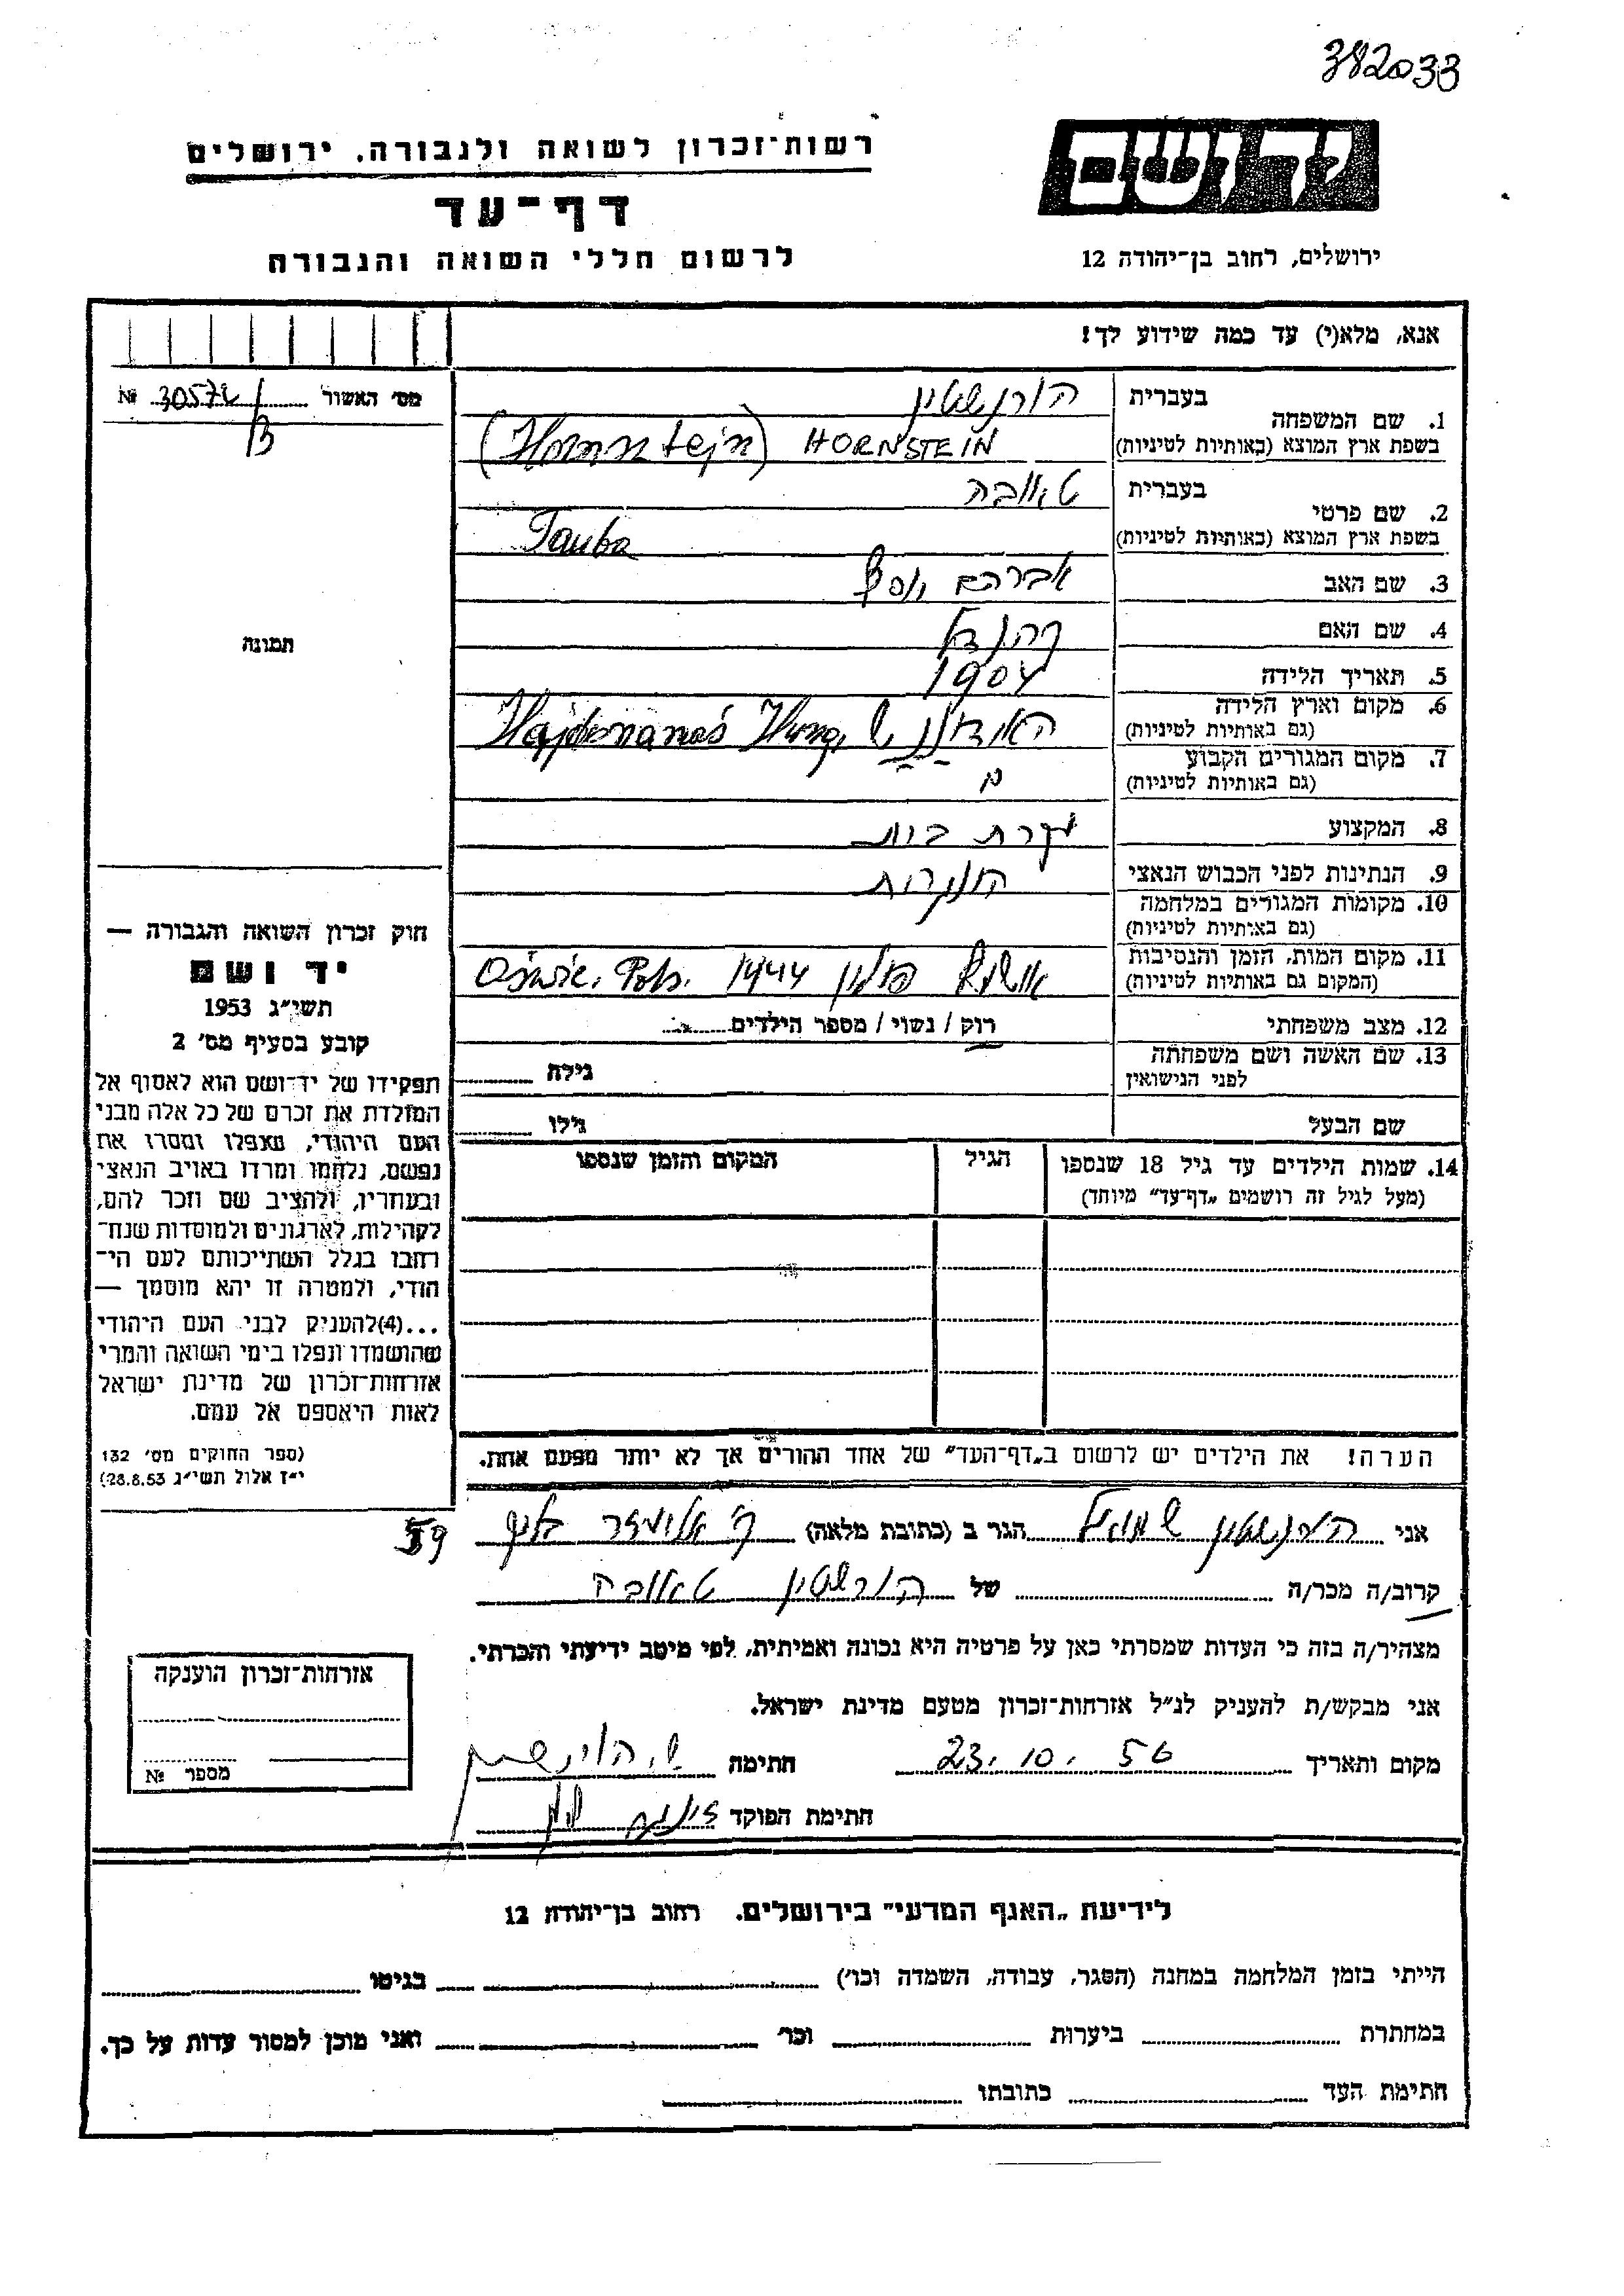 382033
יד ושם
רשות־זכרון לשואה ולגבורה, ירושלים
דף־עד
ירושלים, רחוב בן־יהודה 12
לרשום חללי השואה והגבורה
אנא, מלא(י) עד כמה שידוע לך!
מס׳ האשור № 30572/B
1. שם המשפחה
בעברית הורנשטיין
בשפת ארץ המוצא (באותיות לטיניות) HORNSTEIN (Hornstejn)
2. שם פרטי
בעברית טאובה
בשפת ארץ המוצא (באותיות לטיניות) Tauba
3. שם האב אברהם יוסף
4. שם האם
5. תאריך הלידה 1904
6. מקום וארץ הלידה
(גם באותיות לטיניות) Hajdunanás Hung.
7. מקום המגורים הקבוע
(גם באותיות לטיניות)
8. המקצוע עקרת בית
9. הנתינות לפני הכבוש הנאצי הונגרית
10. מקומות המגורים במלחמה
(גם באותיות לטיניות)
11. מקום המות, הזמן והנסיבות
(המקום גם באותיות לטיניות) אושוויץ פולין 1944
12. מצב משפחתי רוק / נשוי / מספר הילדים
13. שם האשה ושם משפחתה
לפני הנישואין
גילה
שם הבעל גילו
14. שמות הילדים עד גיל 18 שנספו
(מעל לגיל זה רושמים „דף־עד״ מיוחד)
הגיל
המקום והזמן שנספו
הערה! את הילדים יש לרשום ב„דף־העד״ של אחד ההורים אך לא יותר מפעם אחת.
תמונה
חוק זכרון השואה והגבורה —
יד ושם
תשי״ג 1953
קובע בסעיף מס׳ 2
תפקידו של יד־ושם הוא לאסוף אל
המולדת את זכרם של כל אלה מבני
העם היהודי, שנפלו ומסרו את
נפשם, נלחמו ומרדו באויב הנאצי
ובעוזריו, ולהציב שם וזכר להם,
לקהילות, לארגונים ולמוסדות שנח־
רבו בגלל השתייכותם לעם הי־
הודי, ולמטרה זו יהא מוסמך —
...(4)להעניק לבני העם היהודי
שהושמדו ונפלו בימי השואה והמרי
אזרחות־זכרון של מדינת ישראל
לאות היאספם אל עמם.
(ספר החוקים מס׳ 132
י״ז אלול תשי״ג 28.8.53)
אני הורנשטיין שמואל הגר ב (כתובת מלאה)
קרוב/ה מכר/ה של הורנשטיין טאובה
מצהיר/ה בזה כי העדות שמסרתי כאן על פרטיה היא נכונה ואמיתית, לפי מיטב ידיעתי והכרתי.
אני מבקש/ת להעניק לנ״ל אזרחות־זכרון מטעם מדינת ישראל.
מקום ותאריך 23.10.56 חתימה
חתימת הפוקד
אזרחות־זכרון הוענקה
מספר №
לידיעת „האגף המדעי״ בירושלים, רחוב בן־יהודה 12
הייתי בזמן המלחמה במחנה (הסגר, עבודה, השמדה וכו׳) בגיטו
במחתרת ביערות וכו׳ ואני מוכן למסור עדות על כך.
חתימת העד כתובתו